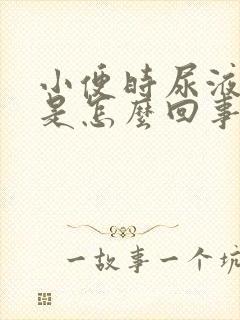 小便時尿液
是怎麼回事
一故事一个坑